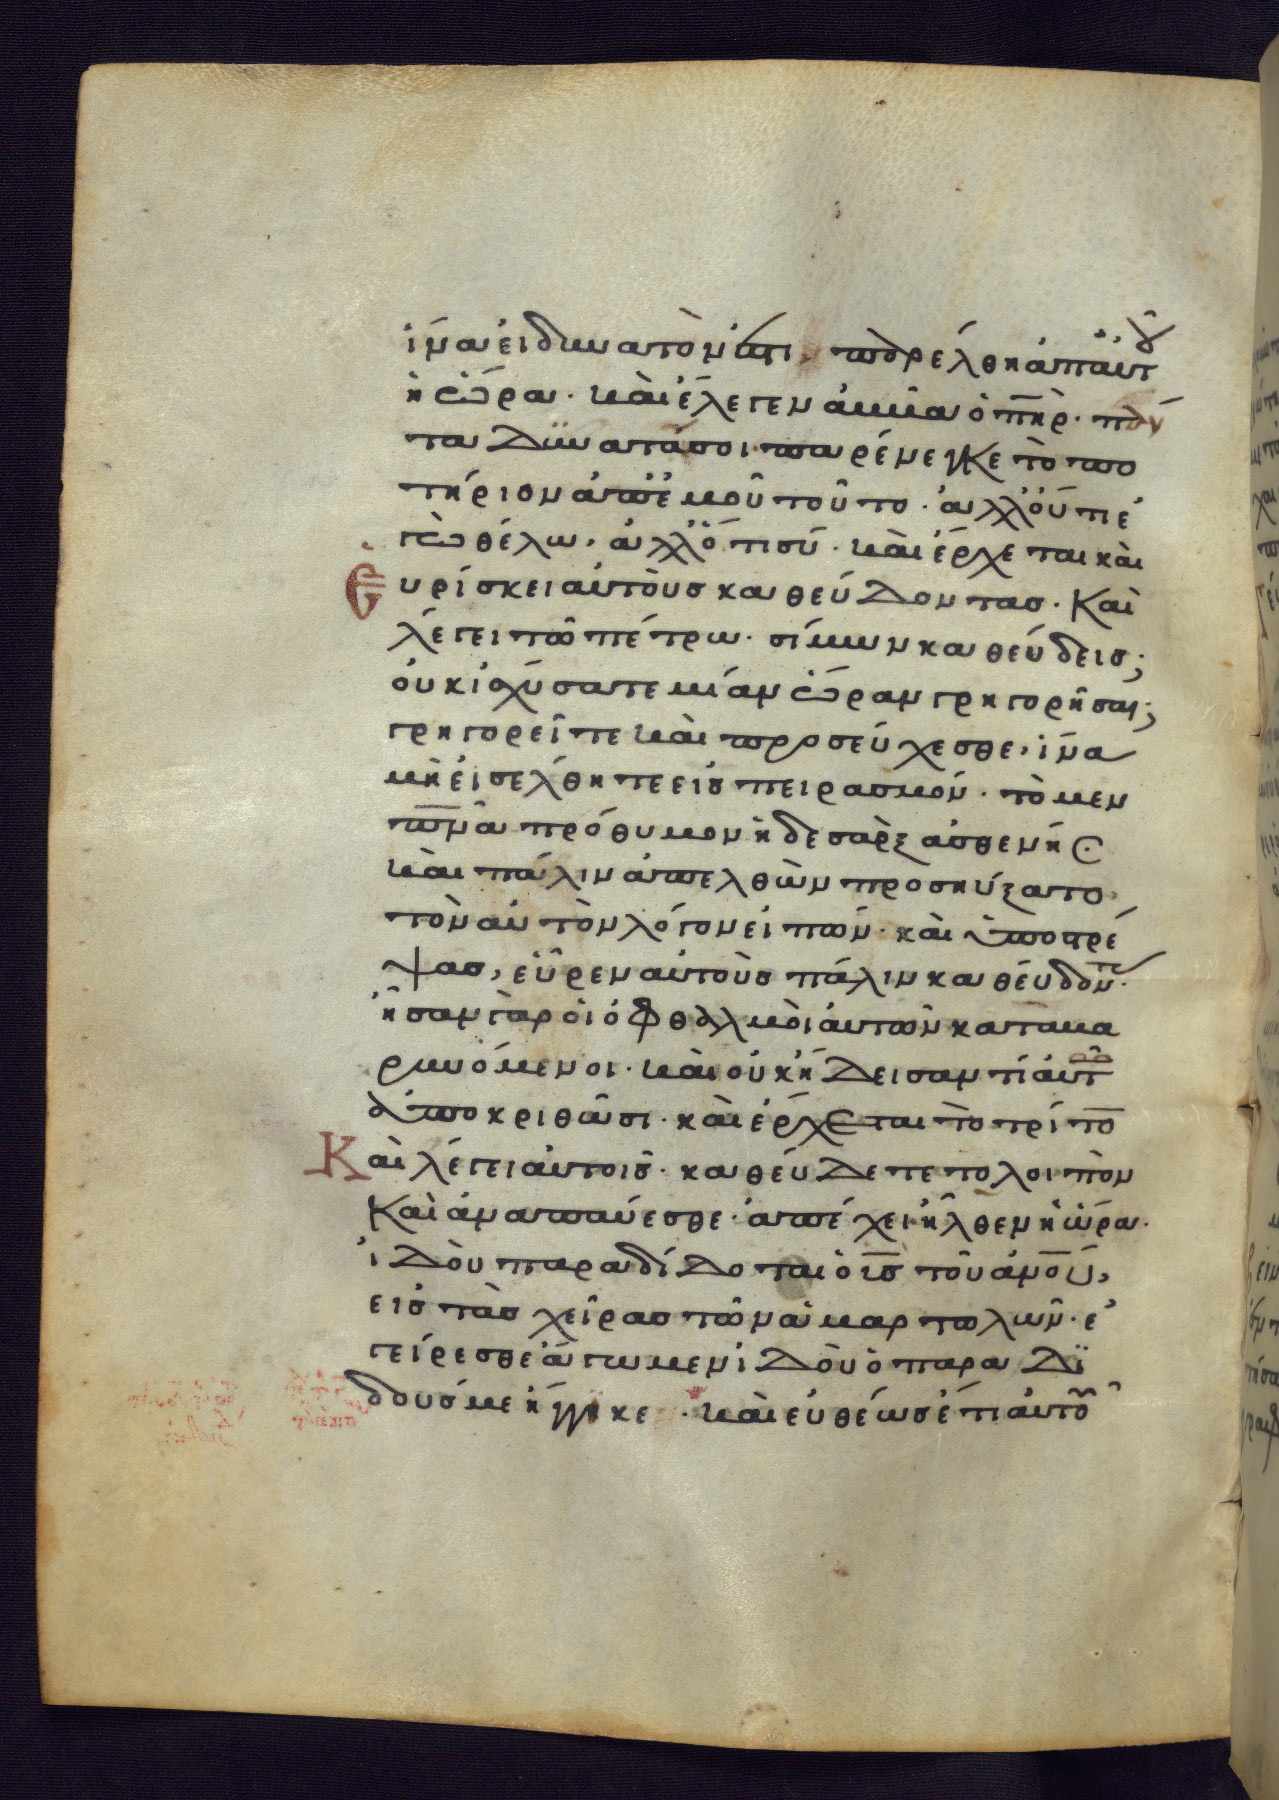 ἵνα εἰ δυνατόν ἐστι, παρέλθη ἀπ αὐτοῦ
ἡ ὥρα· καὶ ἔλεγεν ἀββᾶ ὁ π̅η̅ρ· πάν
τα δυνατά σοι παρένεγκε τὸ πο
τήριον ἀπ ἐμοῦ τοῦτο· ἀλλ οὐ τί ἐ
γὼ θέλω, ἀλλ ὅ τι σύ· καὶ ἔρχεται καὶ
εὑρίσκει αὐτοὺς καθεύδοντας· Καὶ
λέγει τῶ πέτρω· σίμων καθεύδεις;
οὐκ ἰσχύσατε μίαν ὥραν γρηγορῆσαι;
γρηγορεῖτε καὶ προσεύχεσθε, ἵνα
μὴ εἰσέλθητε εἰς πειρασμόν· τὸ μεν
π̅ν̅α πρόθυμον ἡ δε σὰρξ ἀσθενής
καὶ πάλιν ἀπελθὼν προσηύξατο
τὸν αὐτὸν λόγον εἰπών· καὶ ὑποστρέ
ψας, εὗρεν αὐτοὺς πάλιν καθεύδοντ·
ἦσαν γὰρ οἱ ὀφθαλμοὶ αὐτῶν καταβα
ρυνόμενοι· καὶ οὐκ ἤδεισαν τί αὐτῶ
ἀποκριθῶσι· καὶ ἔρχεται τὸ τρίτο
Καὶ λέγει αὐτοῖς· καθεύδετε το λοιπὸν
Καὶ ἀναπαύεσθε· ἀπέχει ἦλθεν ἡ ὥρα·
ἰδοὺ παραδίδοται ὁ υ̅ς̅ τοῦ α̅ν̅ο̅υ̅,
εἰς τὰς χεῖρας τῶν ἁμαρτωλῶν· ἐ
γείρεσθε ἄγωμεν ἰδοὺ ὁ παραδι
δούς με ἤγγικε· καὶ εὐθέως ἔτι αὐτοῦ